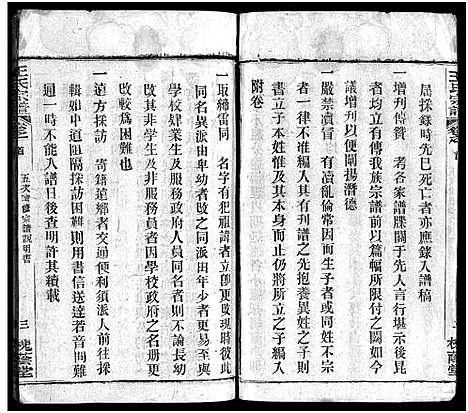 王氏宗譜
居採錄時先已死亡者亦應錄入譜稿
一增刊傳贊　考各家譜牒關于先人言行增示後昆
者均立有傳我族宗譜前以篇幅所限付之缺如今
議增刊以便闡揚潛德
一嚴禁濫子　有瀆亂倫常因而生子者或同外姓不
一律不准編人其有刊譜之先抱養異姓之子刊
作繼出也及其本身而止所立之子編入
附卷
一取締雷同　名字有犯祖諱者立卽更改現彼此
同名異派由卑幼者改之同派由年少者更易至與
學校肄業生及服務政府人員同名者則不論長幼
改其非學生及非服務員者因學校政府之名册更
改較爲困難也
一遠方採訪　寄籍遠鄉者交通便利須派人前往採
輯如中道阻隔採訪困難則用書信送達若音問難
通一時不能入譜日後查明許其續載
王氏宗譜　卷之首
五次續修宗譜說明書
三　桃蔭堂